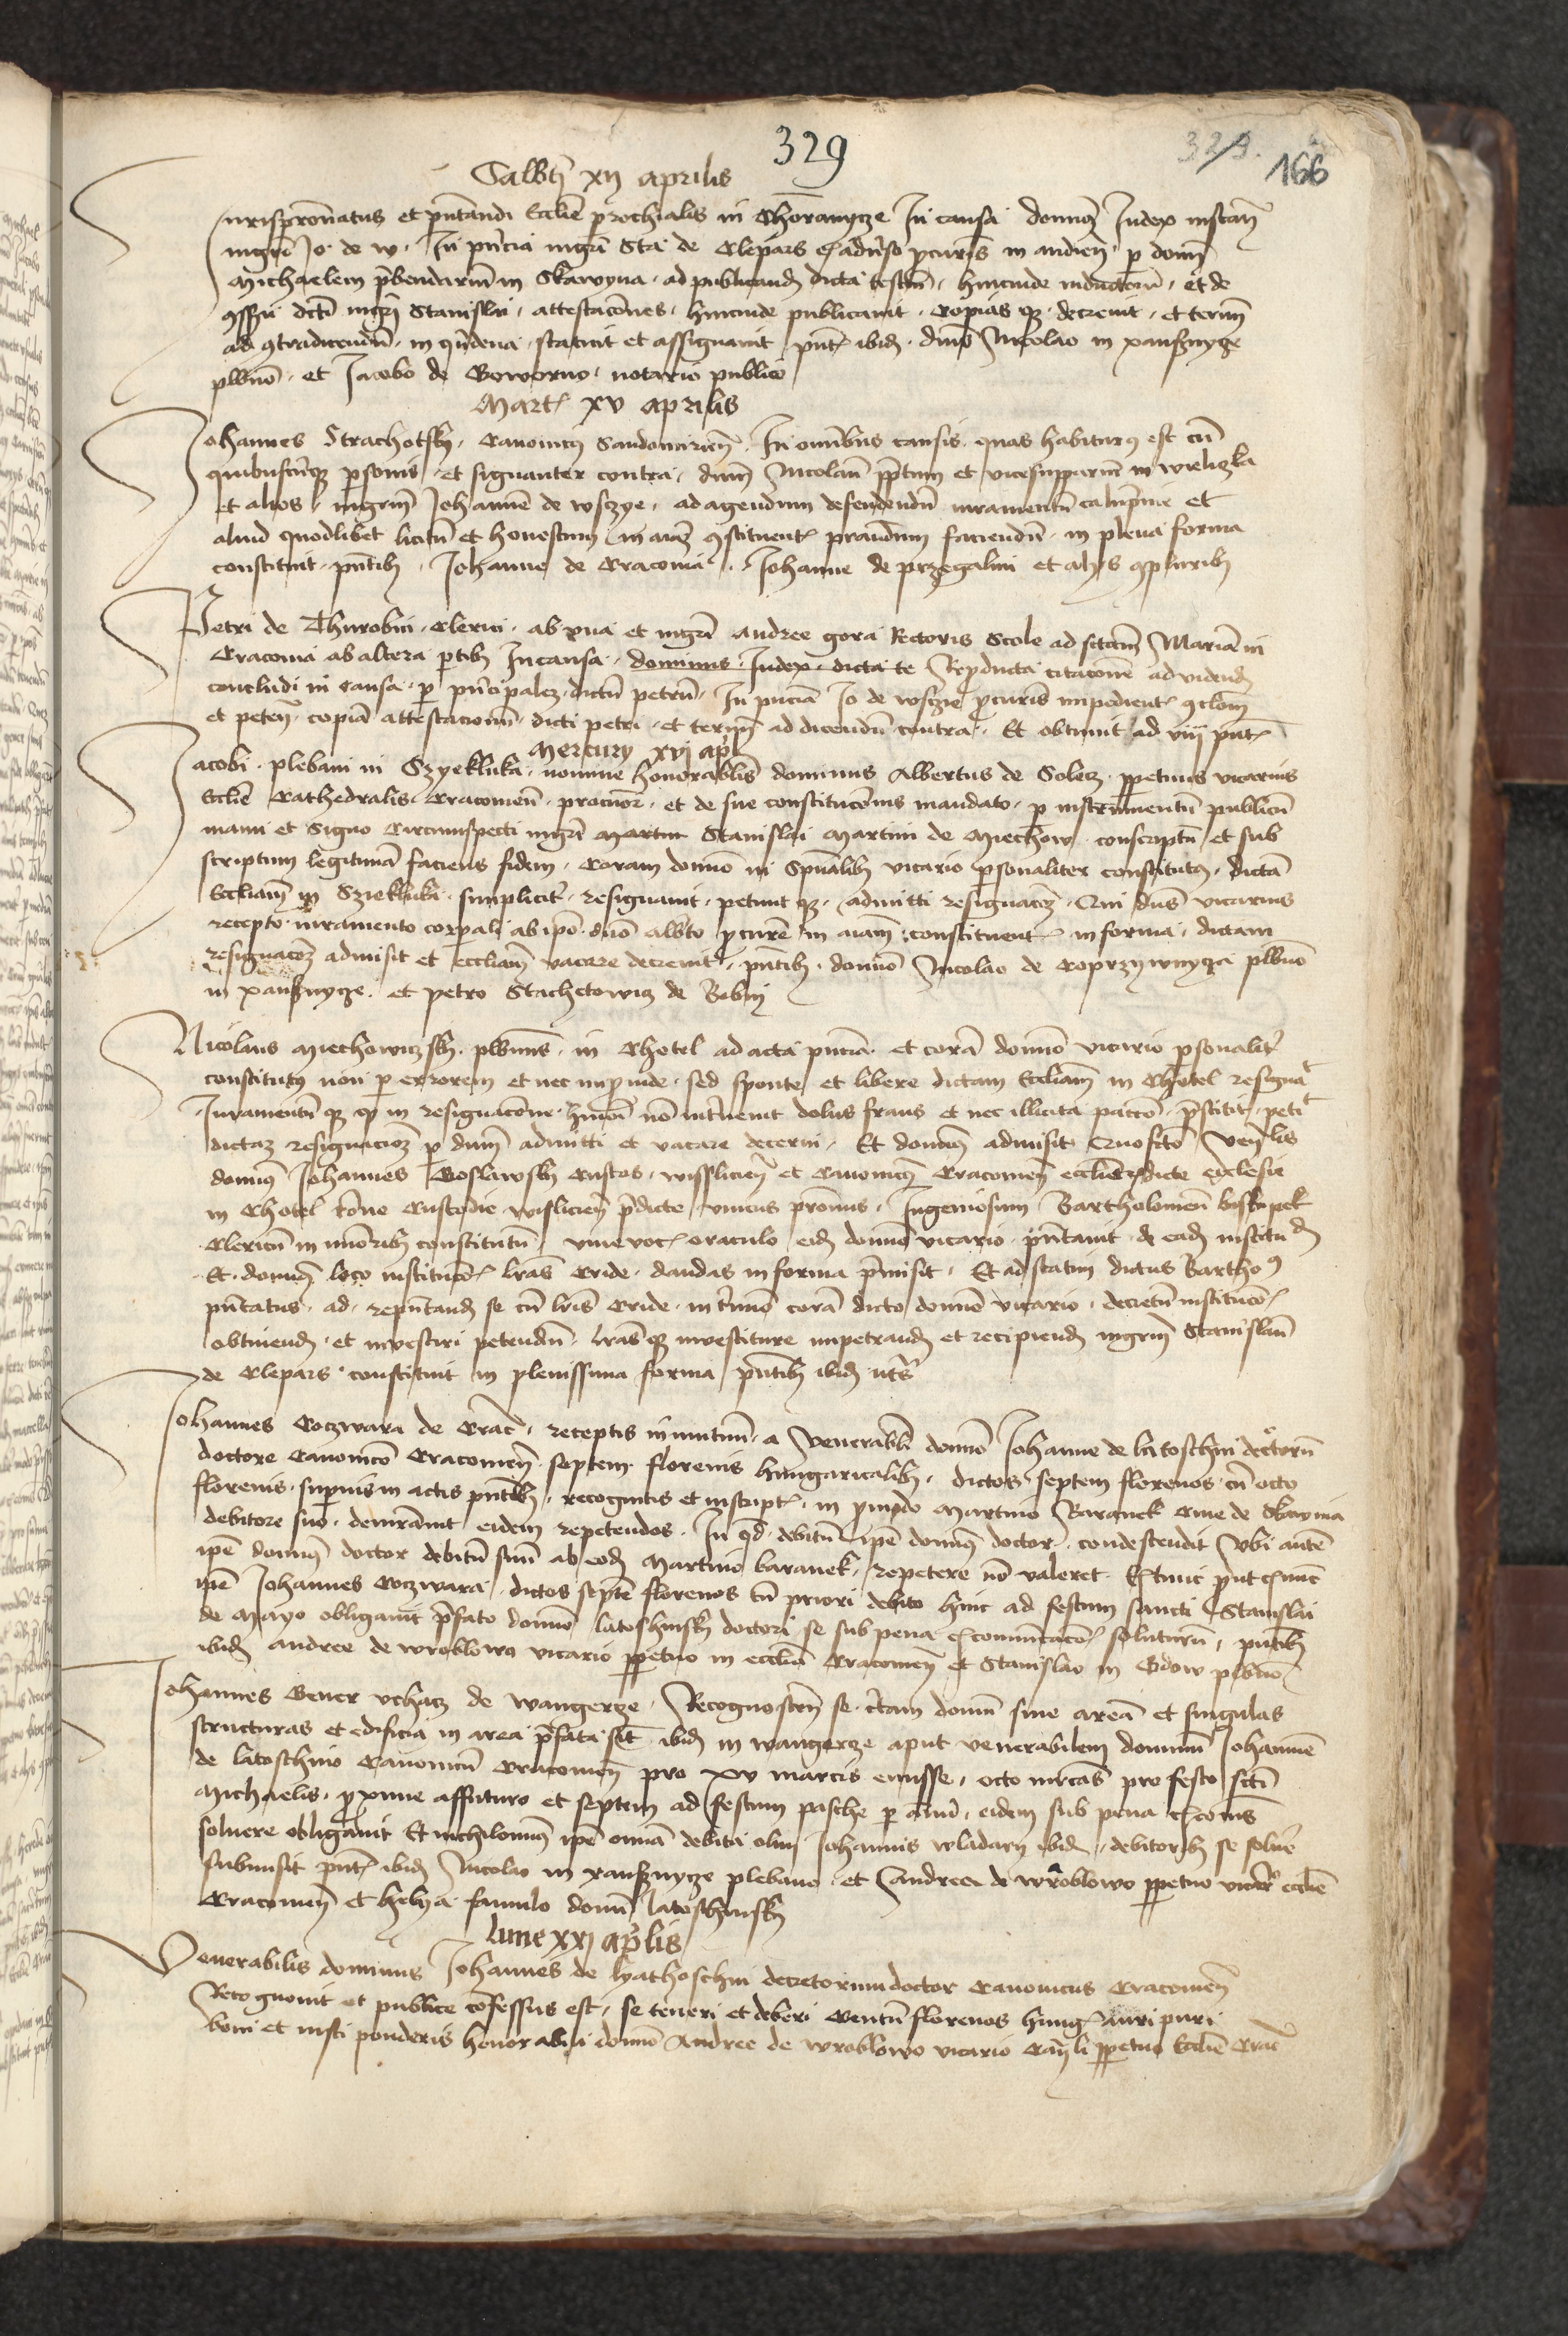 329
329. 166
Sabbti xij aprilis
Jurispronatus et pntandi Ecclie prochialis in Choranycze In causa domnus Judex instan
mgri Jo. de w. In pncia mgri Sta de Cleparz ex aduerso pcuris in audien p domn
Michaelem pbendarium in Skawyna. ad publicand dicta testm. hincinde inductorum. et de
9ssu dicti mgri Stanislai. attestacones. hincinde publicauit. Copias qz. decreuit. et termn
ad 9tradicendum. in quidena. statuit et assignauit. pnt ibid. dmno Nicolao in xanschnycze
plbno. et Jacobo de Goworno. notario publico
Mart xv aprilis
Johannes Strachotsky. Canonicus Sandomirien. In omnibus causis. quas habiturus est cum
quibuscunqz personis. et signanter contra. dnm Nicolaum pptum et vicesupparium in wieliczka
et alios. mgrum Johannem de vsczye. ad agendum defendendum iuramentum calumpnie et
aliud quodlibet licitum et honestum in aiaz 9stituent prandum faciendum. in plena forma
constituit. pntibus. Johanne de Cracouia. Johanne de przegalini et alijs 9pluribus
Petri de Thurobin. Clerici. ab vna et mgri Andree gora Rectoris Scole ad sctam Mariam in
Cracouia ab altera ptibus In causa. dominus. Judex. dicta te Reproducta citacione ad videnď
concludi in causa. p pncipalez. dictum petrum. In pncia Jo de vsczie pcuris impedient 9clom
et peten. copiam attestacionum. dicti petri. et termn ad dicendum contra. Et obtinuit ad viij pnt
Mercurij xvj apl
Jacobi. plebani in Szyekluka. nomine honorabilis dominus Albertus de Solecz. ppetuus vicarius
Ecclie Cathedralis. Cracouien. procuror. et de sue constitucionis mandato. p instrumentum publicum
manu et Signo Circumspecti mgri Martini Stanislai Martini de Miechow. conscriptum et sub
scriptum legitimam faciens fidem. Coram domno in Spualibus vicario personaliter constitutus. dictam
Eccliam in Szyekluka. simpliciter. resignauit. petiuit qz. admitti resignacoz. Qui dns vicarius
recepto iuramento corpali ab ipo dno Albto pcure in aiam constituent in forma. dictam
resignacoz admisit et eccliam vacare decreuit. pntibus. domno Nicolao de Coprzywnycza plbno
in xansnycze. et petro Stachetowicz de Bobin
Nicolaus Miechowiczsky. plbnus. in Chotel ad acta pncia. et coram domno vicario personaliter
constitutus non p errorem et nec improuide. sed sponte et libere dictam Eccliam in Chotel resignat
Juramentum qz q in resignacione. hmoi non interuenit dolus fraus et nec illicita paccio. prestitit. petit
dictaz resignacioz p dnm admitti et vacare decerni. Et domnus admisit Quo fcto Venlis
domnus Johannes Goslawsky Custos. wisslicien et Canonicus Cracouien ecclie dicte ecclesie
in Chotel racione Custodie wislicien predicte vnicus pronus. Ingeniosum Bartholomeum biskupek
Clericum in minoribus constitutum. viue voc oraculo eid domno vicario. pntauit. de ead instituď
Et. domnus loco institucionis lras Cride. dandas in forma pmisit. Et ad statim dictus Bartho9
pntatus. ad. repntandum se cum lris Cride. in termno coram dicto domno vicario. decretum institucionis
obtinend. et inuestiri petendum. lras qz inuestiture impetrand et recipiend mgrum Stanislaum
de Cleparz. constituit in plenissima forma pntibus ibid uts
Johannes Coczwara de Crac. receptis in mutuum. a Venerabili domno Johanne de latoschin dectorum
doctore Canonico Cracouien. septem florenis hungaricalibus. dictos septem florenos. cum octo
florenis. superius in actis pntibus. recognitis et inscript. in prouido Martino Baranek ciue de Skawina
debitore suo. demrauit eidem repetendos. In qd debitum ipe domnus doctor. condescendit Vbi autem
ipe domnus doctor debitum suum ab eod Martino baranek. repetere non valeret. Extunc prout exnunc
ipe Johannes Coczwara. dictos septem florenos cum priori debito hinc ad festum sancti Stanislai
de Mayo obligauit prefato domno latoschinsky doctori se sub pena excommunicacionis soluturum. pntibus
ibid Andree de wroblowo vicario ppetuo in ecclia Cracouien et Stanislao in Gdow plbno
Johannes Gener vchacz de wangercze. Recognoscens se. certam domum siue aream et singulas
structuras et edificia in area prefata sit ibid in wangercze aput venerabilem dominum Johannem
de latoschino Canonicum Cracouien pro xv marcis emisse. octo mrcas pro festo scti
Michaelis. proxime affuturo et septem ad festum pasche p annum. eidem sub pena excois
soluere obligauit Et nichilominus ipe omnia debita olim Johannis wladarij ibid. debitoribus se soluere
submisit pnt ibid Nicolao in xansznycze plebano. et Andrea de wroblowo ppetuo vicario ecclie
Cracouien et helya famulo domni latoschinsky
lune xxj aprilis
Venerabilis dominus Johannes de lyathoschin decretorum doctor Canonicus Cracouien
Recognouit et publice confessus est. se teneri et deberi Centum florenos hung auri puri
boni et iusti ponderis honorabili domno Andree de wroblowo vicario Cauli ppetuo Ecclie Crac